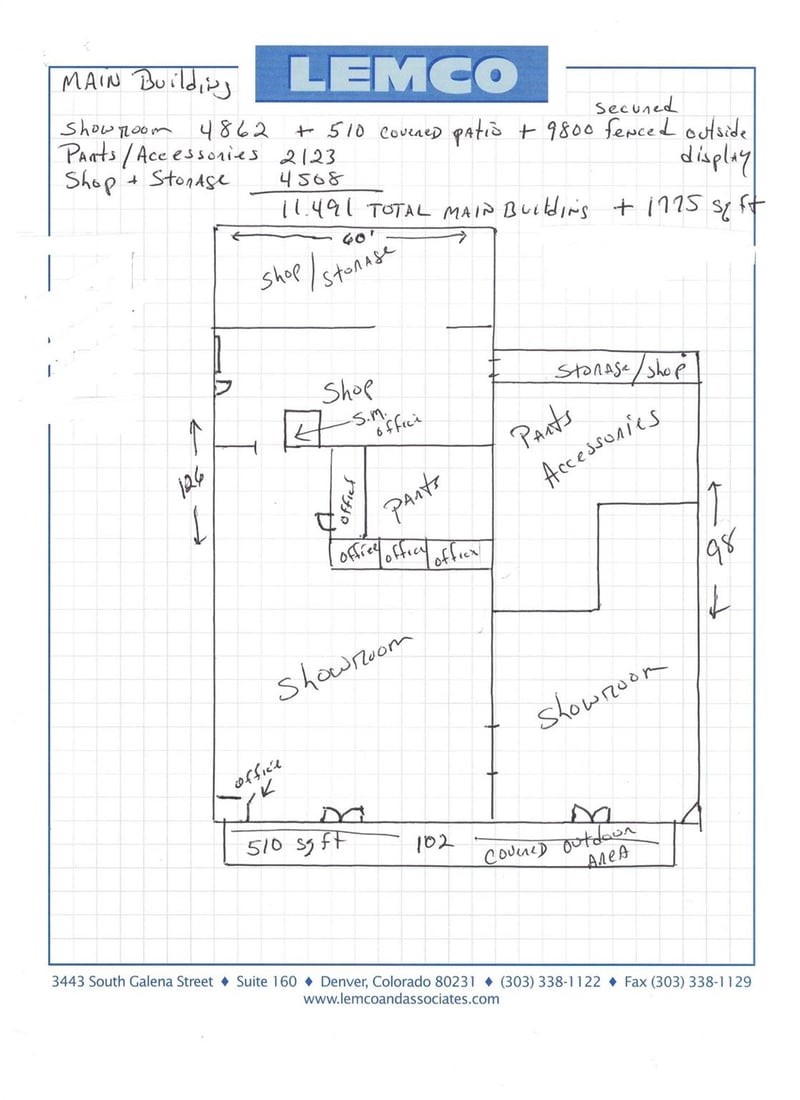 LEMCO
MAIN Building
Showroom 4862 + 510 covered patio + 9800 secured fenced outside display
Parts/Accessories 2123
Shop + Storage 4508
11.491 TOTAL MAIN Building + 1775 sq ft
60'
Shop/Storage
Storage/Shop
Shop
S.M. office
Parts Accessories
126
office
Parts
office office office
98
Showroom
Showroom
office
510 sq ft 102 Covered Outdoor Area
3443 South Galena Street ♦ Suite 160 ♦ Denver, Colorado 80231 ♦ (303) 338-1122 ♦ Fax (303) 338-1129
www.lemcoandassociates.com